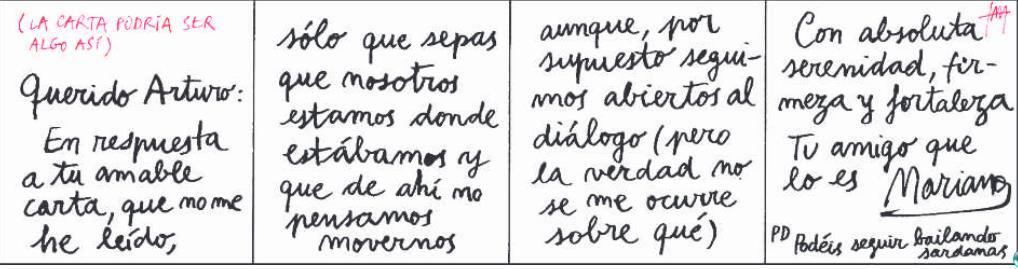 (LA CARTA PODRÍA SER
ALGO ASÍ)
Querido Arturo:
En respuesta
a tu amable
carta, que no me
he leído,
sólo que sepas
que nosotros
estamos donde
estábamos y
que de ahí no
pensamos
movernos
aunque, por
supuesto segui-
mos abiertos al
diálogo (pero
la verdad no
se me ocurre
sobre qué)
Con absoluta
serenidad, fir-
meza y fortaleza
Tu amigo que
lo es Mariano
PD Podéis seguir bailando
sardanas